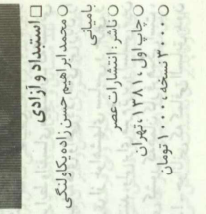 □ استبداد و آزادی
○ محمد ابراهیم حسن زاده یکاولنگی
بامیانی
○ ناشر: انتشارات عصر
○ چاپ اول، ۱۳۸۱، تهران
○ ۳۰۰۰ نسخه، ۱۰۰۰ تومان